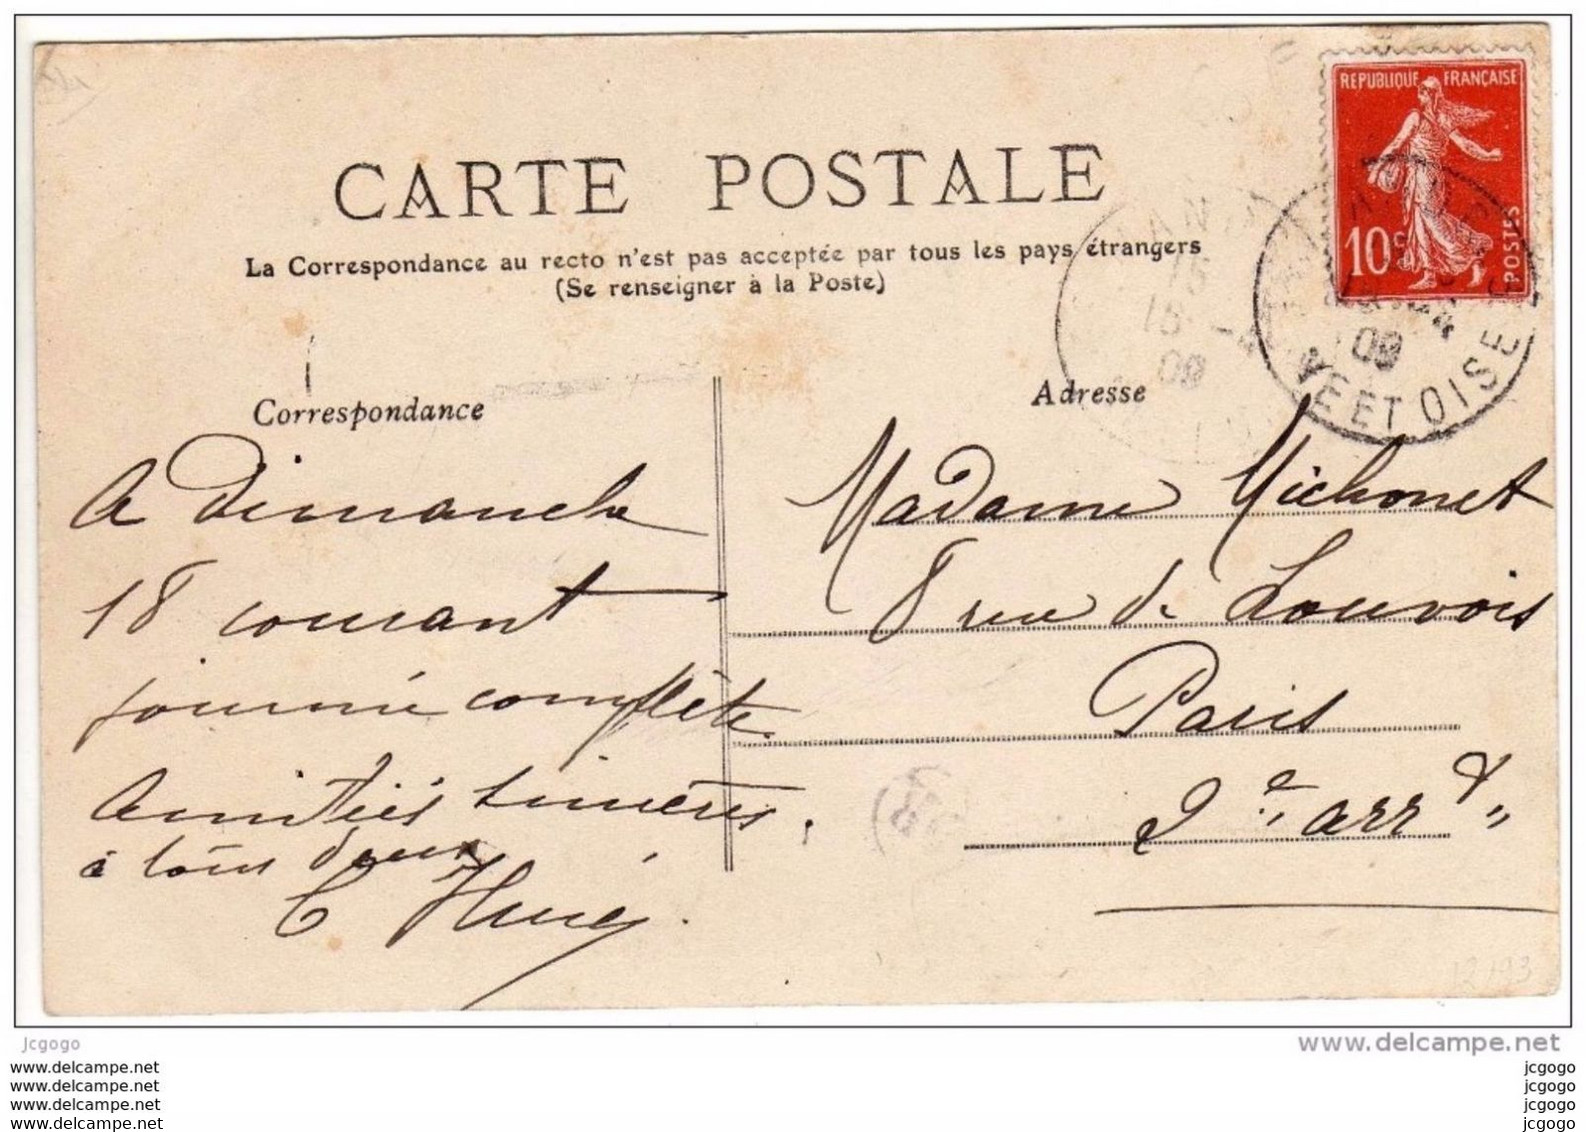 REPUBLIQUE FRANÇAISE
10c
POSTES
CARTE POSTALE
La Correspondance au recto n'est pas acceptée par tous les pays étrangers
(Se renseigner à la Poste)
09
ET OISE
15
15 -4
09
Correspondance
A Dimanche
18 courant
journée complète
Amitiés sincères.
à tous deux
C Hué.
Adresse
Madame Michonet
8 rue de Louvois
Paris
2e arrt
12193
jcgogo
www.delcampe.net
www.delcampe.net
www.delcampe.net
www.delcampe.net
www.delcampe.net
jcgogo
jcgogo
jcgogo
jcgogo